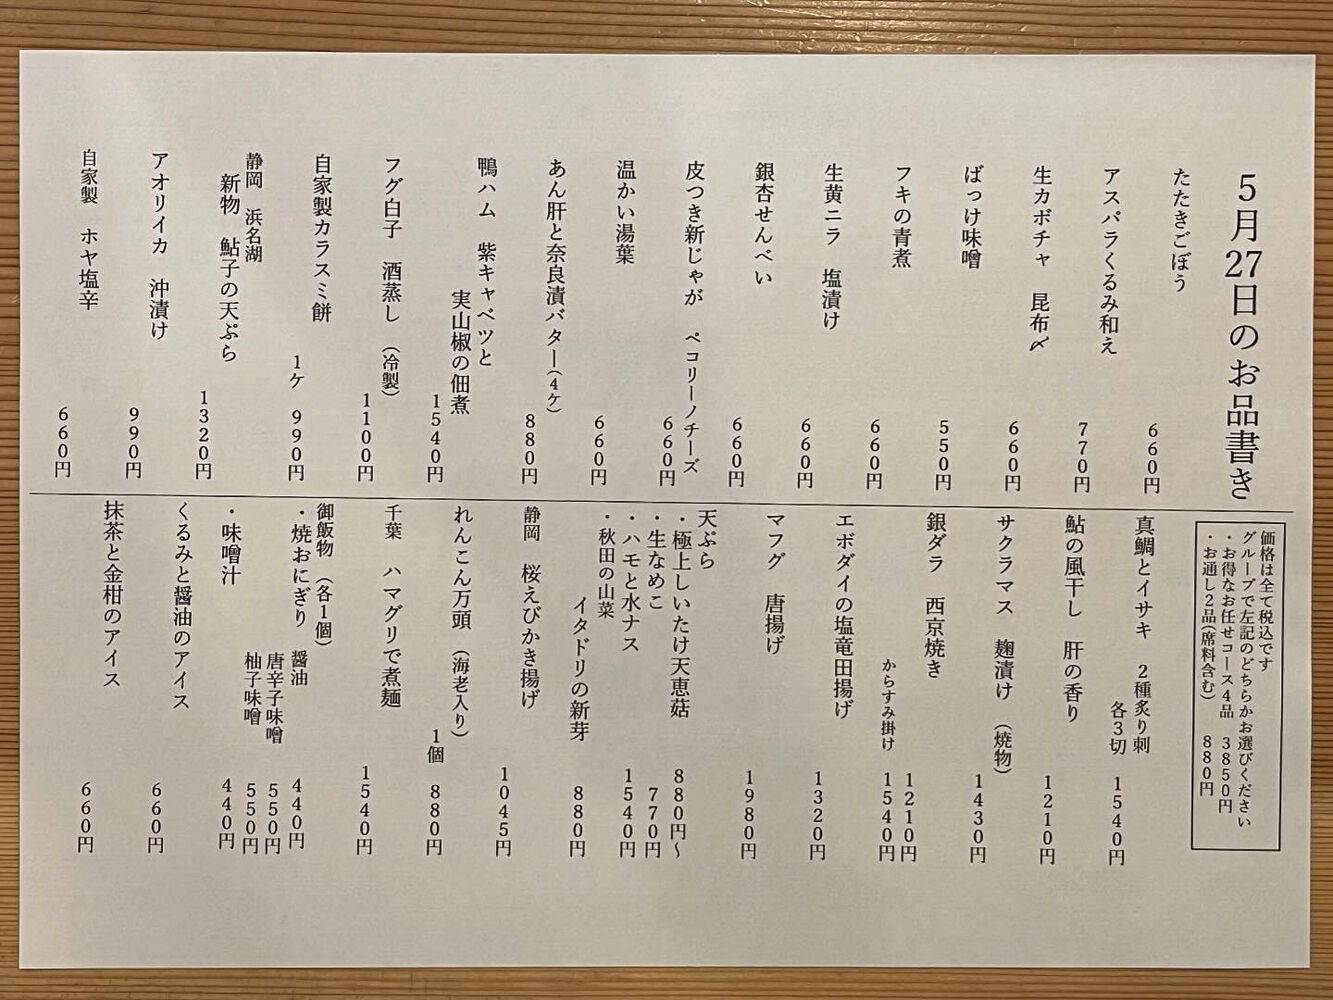 5月27日のお品書き
たたきごぼう 660円
アスパラくるみ和え 770円
生カボチャ 昆布〆 660円
ばっけ味噌 550円
フキの青煮 660円
生黄ニラ 塩漬け 660円
銀杏せんべい 660円
皮つき新じゃが ペコリーノチーズ 660円
温かい湯葉 660円
あん肝と奈良漬バター(4ケ) 880円
鴨ハム 紫キャベツと
実山椒の佃煮 1540円
フグ白子 酒蒸し (冷製) 1100円
自家製カラスミ餅 1ケ 990円
静岡 浜名湖
新物 鮎子の天ぷら 1320円
アオリイカ 沖漬け 990円
自家製 ホヤ塩辛 660円
価格は全て税込です
グループで左記のどちらかお選びください
・お得なお任せコース4品 3850円
・お通し2品(席料含む) 880円
真鯛とイサキ 2種炙り刺
各3切 1540円
鮎の風干し 肝の香り 1210円
サクラマス 麹漬け (焼物) 1430円
銀ダラ 西京焼き 1210円
からすみ掛け 1540円
エボダイの塩竜田揚げ 1320円
マフグ 唐揚げ 1980円
天ぷら
・極上しいたけ天恵菇 880円〜
・生なめこ 770円
・ハモと水ナス 1540円
・秋田の山菜
イタドリの新芽 880円
静岡 桜えびかき揚げ 1045円
れんこん万頭 (海老入り) 1個 880円
千葉 ハマグリで煮麺 1540円
御飯物 (各1個)
・焼おにぎり 醤油 440円
唐辛子味噌 550円
柚子味噌 550円
・味噌汁 440円
くるみと醤油のアイス 660円
抹茶と金柑のアイス 660円